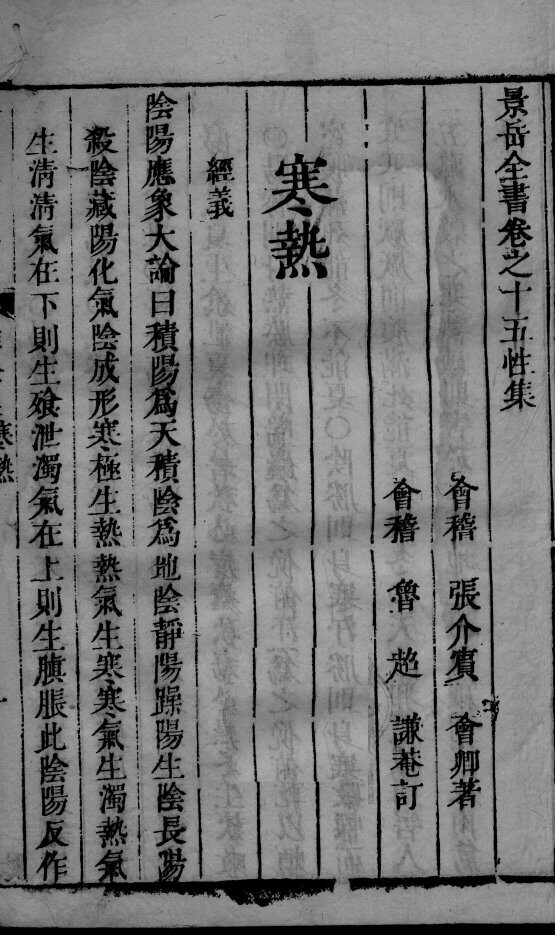 景岳全書卷之十五性集
會稽 張介賓 會卿著
會稽 魯超 謙菴訂
寒熱
經義
陰陽應象大論曰積陽爲天積陰爲地陰靜陽躁陽生陰長陽
殺陰藏陽化氣陰成形寒極生熱熱氣生寒寒氣生濁熱氣
生清清氣在下則生飱泄濁氣在上則生䐜脹此陰陽反作
寒熱